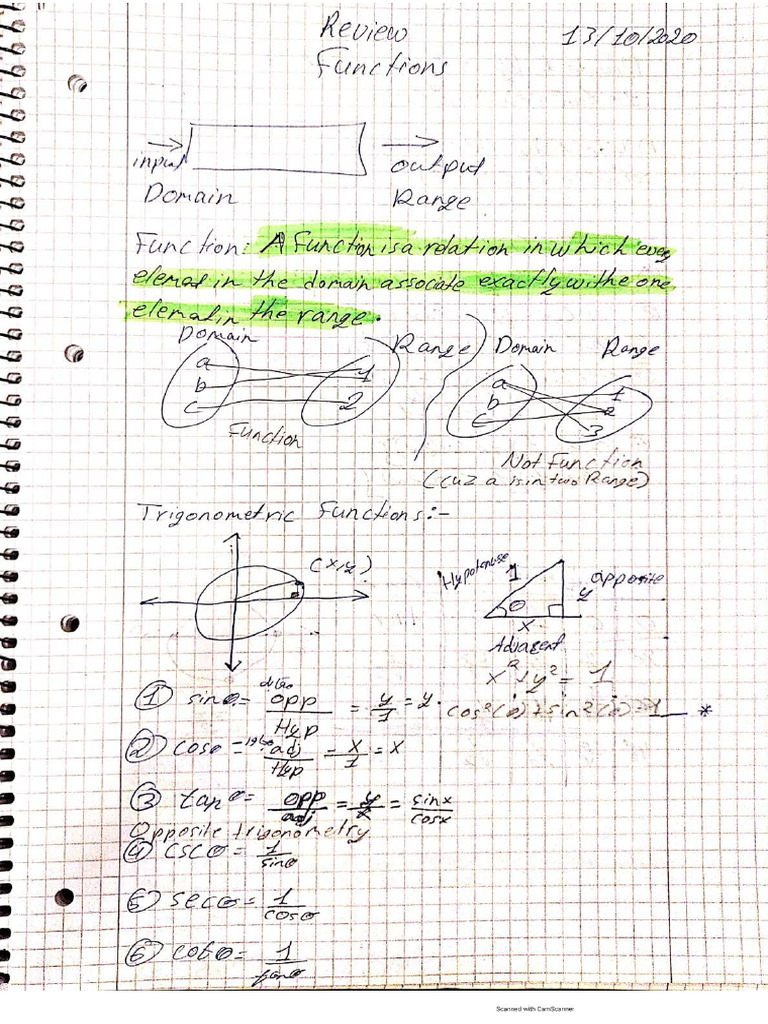 Review
13/10/2020
Functions
input
output
Domain
Range
Function: A Function is a relation in which every
elemat in the domain associate exactly withe one
elemat in the range.
Domain
Range
a
b
c
1
2
Function
Domain
Range
a
b
c
1
2
3
Not Function
(cuz a is in two Range)
Trigonometric Functions:-
(x,y)
Hypotenuse
1
opposite
y
θ
x
Adjacent
x² + y² = 1
① sinθ = opp/Hyp = y/1 = y.
cos²(θ) + sin²(θ) = 1 *
② cosθ = adj/Hyp = x/1 = x
③ tanθ = opp/adj = y/x = sinx/cosx
Opposite trigonometry
④ cscθ = 1/sinθ
⑤ secθ = 1/cosθ
⑥ cotθ = 1/tanθ
Scanned with CamScanner